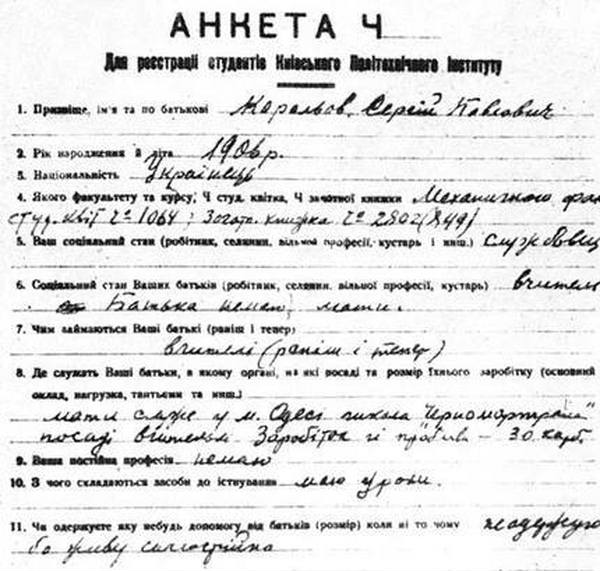 АНКЕТА Ч
Для реєстрації студентів Київського Політехнічного Інституту
1. Призвіще, ім'я та по батькові Корольов Сергій Павлович
2. Рік народження й літа 1906 р.
3. Національність Українець
4. Якого факультету та курсу, Ч студ. квітка, Ч зачотної книжки Механичного фак
студ. квіт Ч 1064; Зачотн. книжка Ч 2802(849)
5. Ваш соціяльний стан (робітник, селянин, вільної професії, кустарь і инш.) службовец
6. Соціяльний стан Ваших батьків (робітник, селянин, вільної професії, кустарь) вчителі
Батька немає, мати.
7. Чим займаються Ваші батькі (раніш і тепер)
вчителі (раніш і тепер)
8. Де служать Ваші батьки, в якому органі, на які посаді та розмір їхнього заробітку (основний
оклад, нагрузка, тантьєми та инш.)
мати служе у м. Одесі школа Чорномортрана
посаді вчительки Заробіток її 30 карб.
9. Ваша постійна професія немаю
10. З чого складаються засоби до існування маю уроки.
11. Чи одержуєте яку небудь допомогу від батьків (розмір) коли ні то чому неодержую
бо живу самостійно